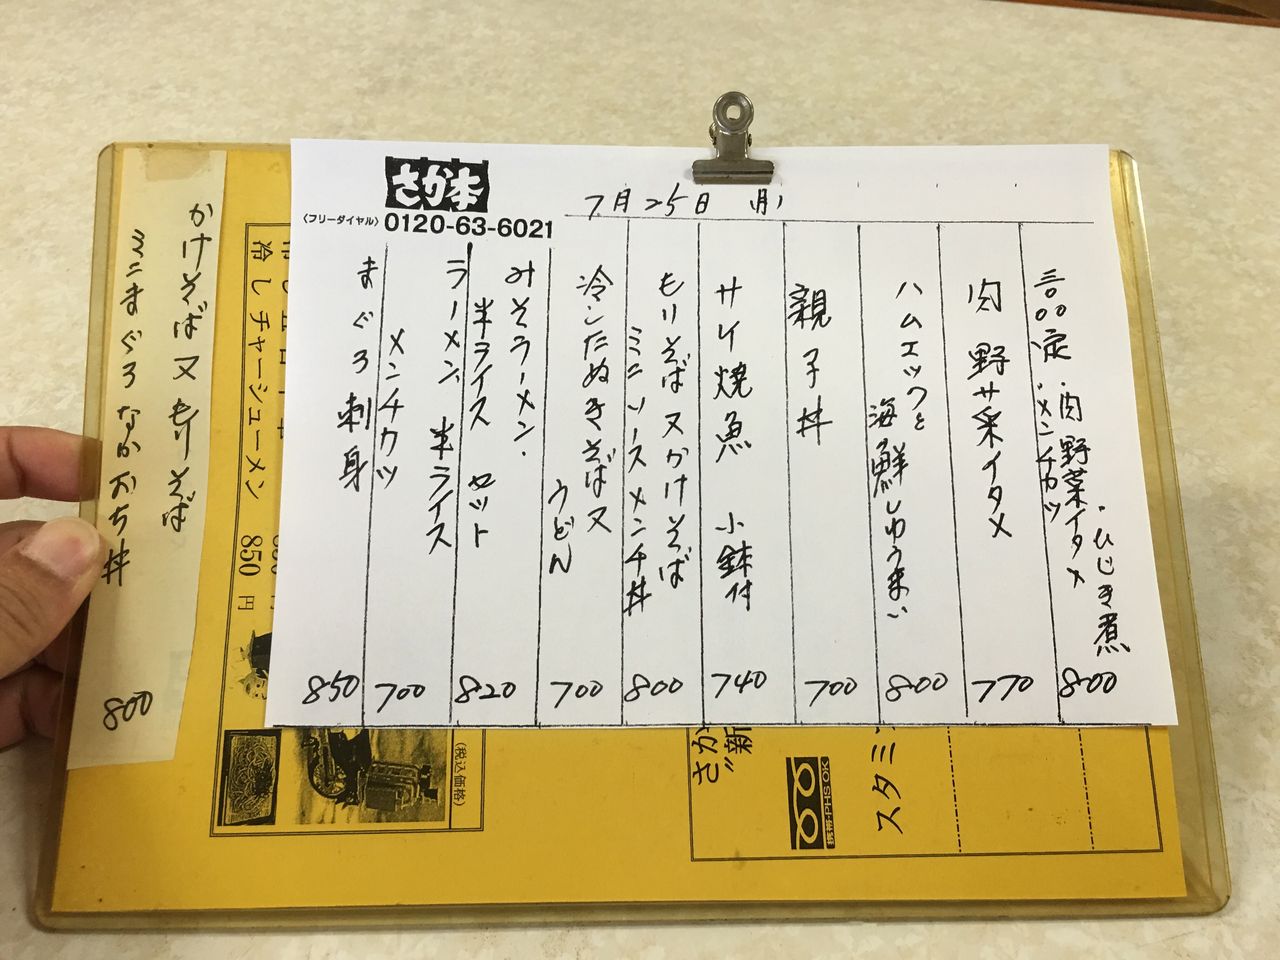 さか本
(フリーダイヤル) 0120-63-6021
7月25日 (月)
・ひじき煮
・肉野菜イタメ
・メンチカツ
800
肉野サ菜イタメ
770
ハムエッグと
海鮮しゅうまい
800
親子丼
700
サバ焼魚 小鉢付
740
もりそば又かけそば
ミニソースメンチ丼
800
冷したぬきそば又
うどん
700
みそラーメン、
半ライス セット
820
ラーメン、半ライス
メンチカツ
700
まぐろ刺身
850
かけそば又もりそば
ミニまぐろなかおち丼
800
冷しチャーシューメン 850円
(税込価格)
さか
"新
携帯・PHS OK
スタミ